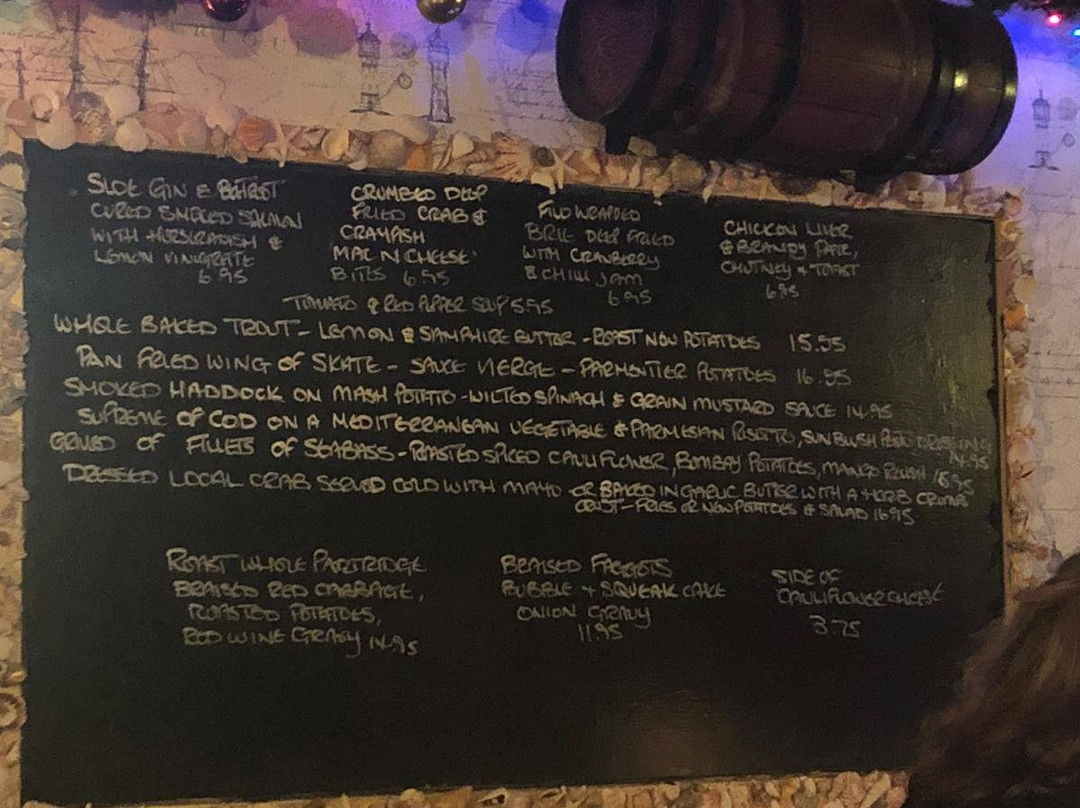 SLOE GIN & BETROOT
CURED SMOKED SALMON
WITH HORSERADISH &
LEMON VINIGRATE
6.95
CRUMBED DEEP
FRIED CRAB &
CRAYFISH
MAC N CHEESE
BITES 6.95
FILO WRAPPED
BRIE DEEP FRIED
WITH CRANBERRY
& CHILLI JAM
6.95
CHICKEN LIVER
& BRANDY PATE,
CHUTNEY + TOAST
6.95
TOMATO & RED PEPPER SOUP 5.95
WHOLE BAKED TROUT - LEMON & SAMPHIRE BUTTER - ROAST NEW POTATOES 15.95
PAN FRIED WING OF SKATE - SAUCE VIERGE - PARMENTIER POTATOES 16.95
SMOKED HADDOCK ON MASH POTATO - WILTED SPINACH & GRAIN MUSTARD SAUCE 14.95
SUPREME OF COD ON A MEDITERRANEAN VEGETABLE & PARMESAN RISOTTO, SUNBLUSH PESTO DRESSING
14.95
GRILLED OF FILLETS OF SEABASS - ROASTED SPICED CAULIFLOWER, BOMBAY POTATOES, MANGO 15.95
DRESSED LOCAL CRAB SERVED COLD WITH MAYO OR BAKED IN GARLIC BUTTER WITH A HERB CRUMB
CRUST - FRIES OR NEW POTATOES & SALAD 16.95
ROAST WHOLE PARTRIDGE
BRAISED RED CABBAGE,
ROASTED POTATOES,
RED WINE GRAVY 14.95
BRAISED FAGGOTS
BUBBLE + SQUEAK CAKE
ONION GRAVY
11.95
SIDE OF
CAULIFLOWER CHEESE
3.75